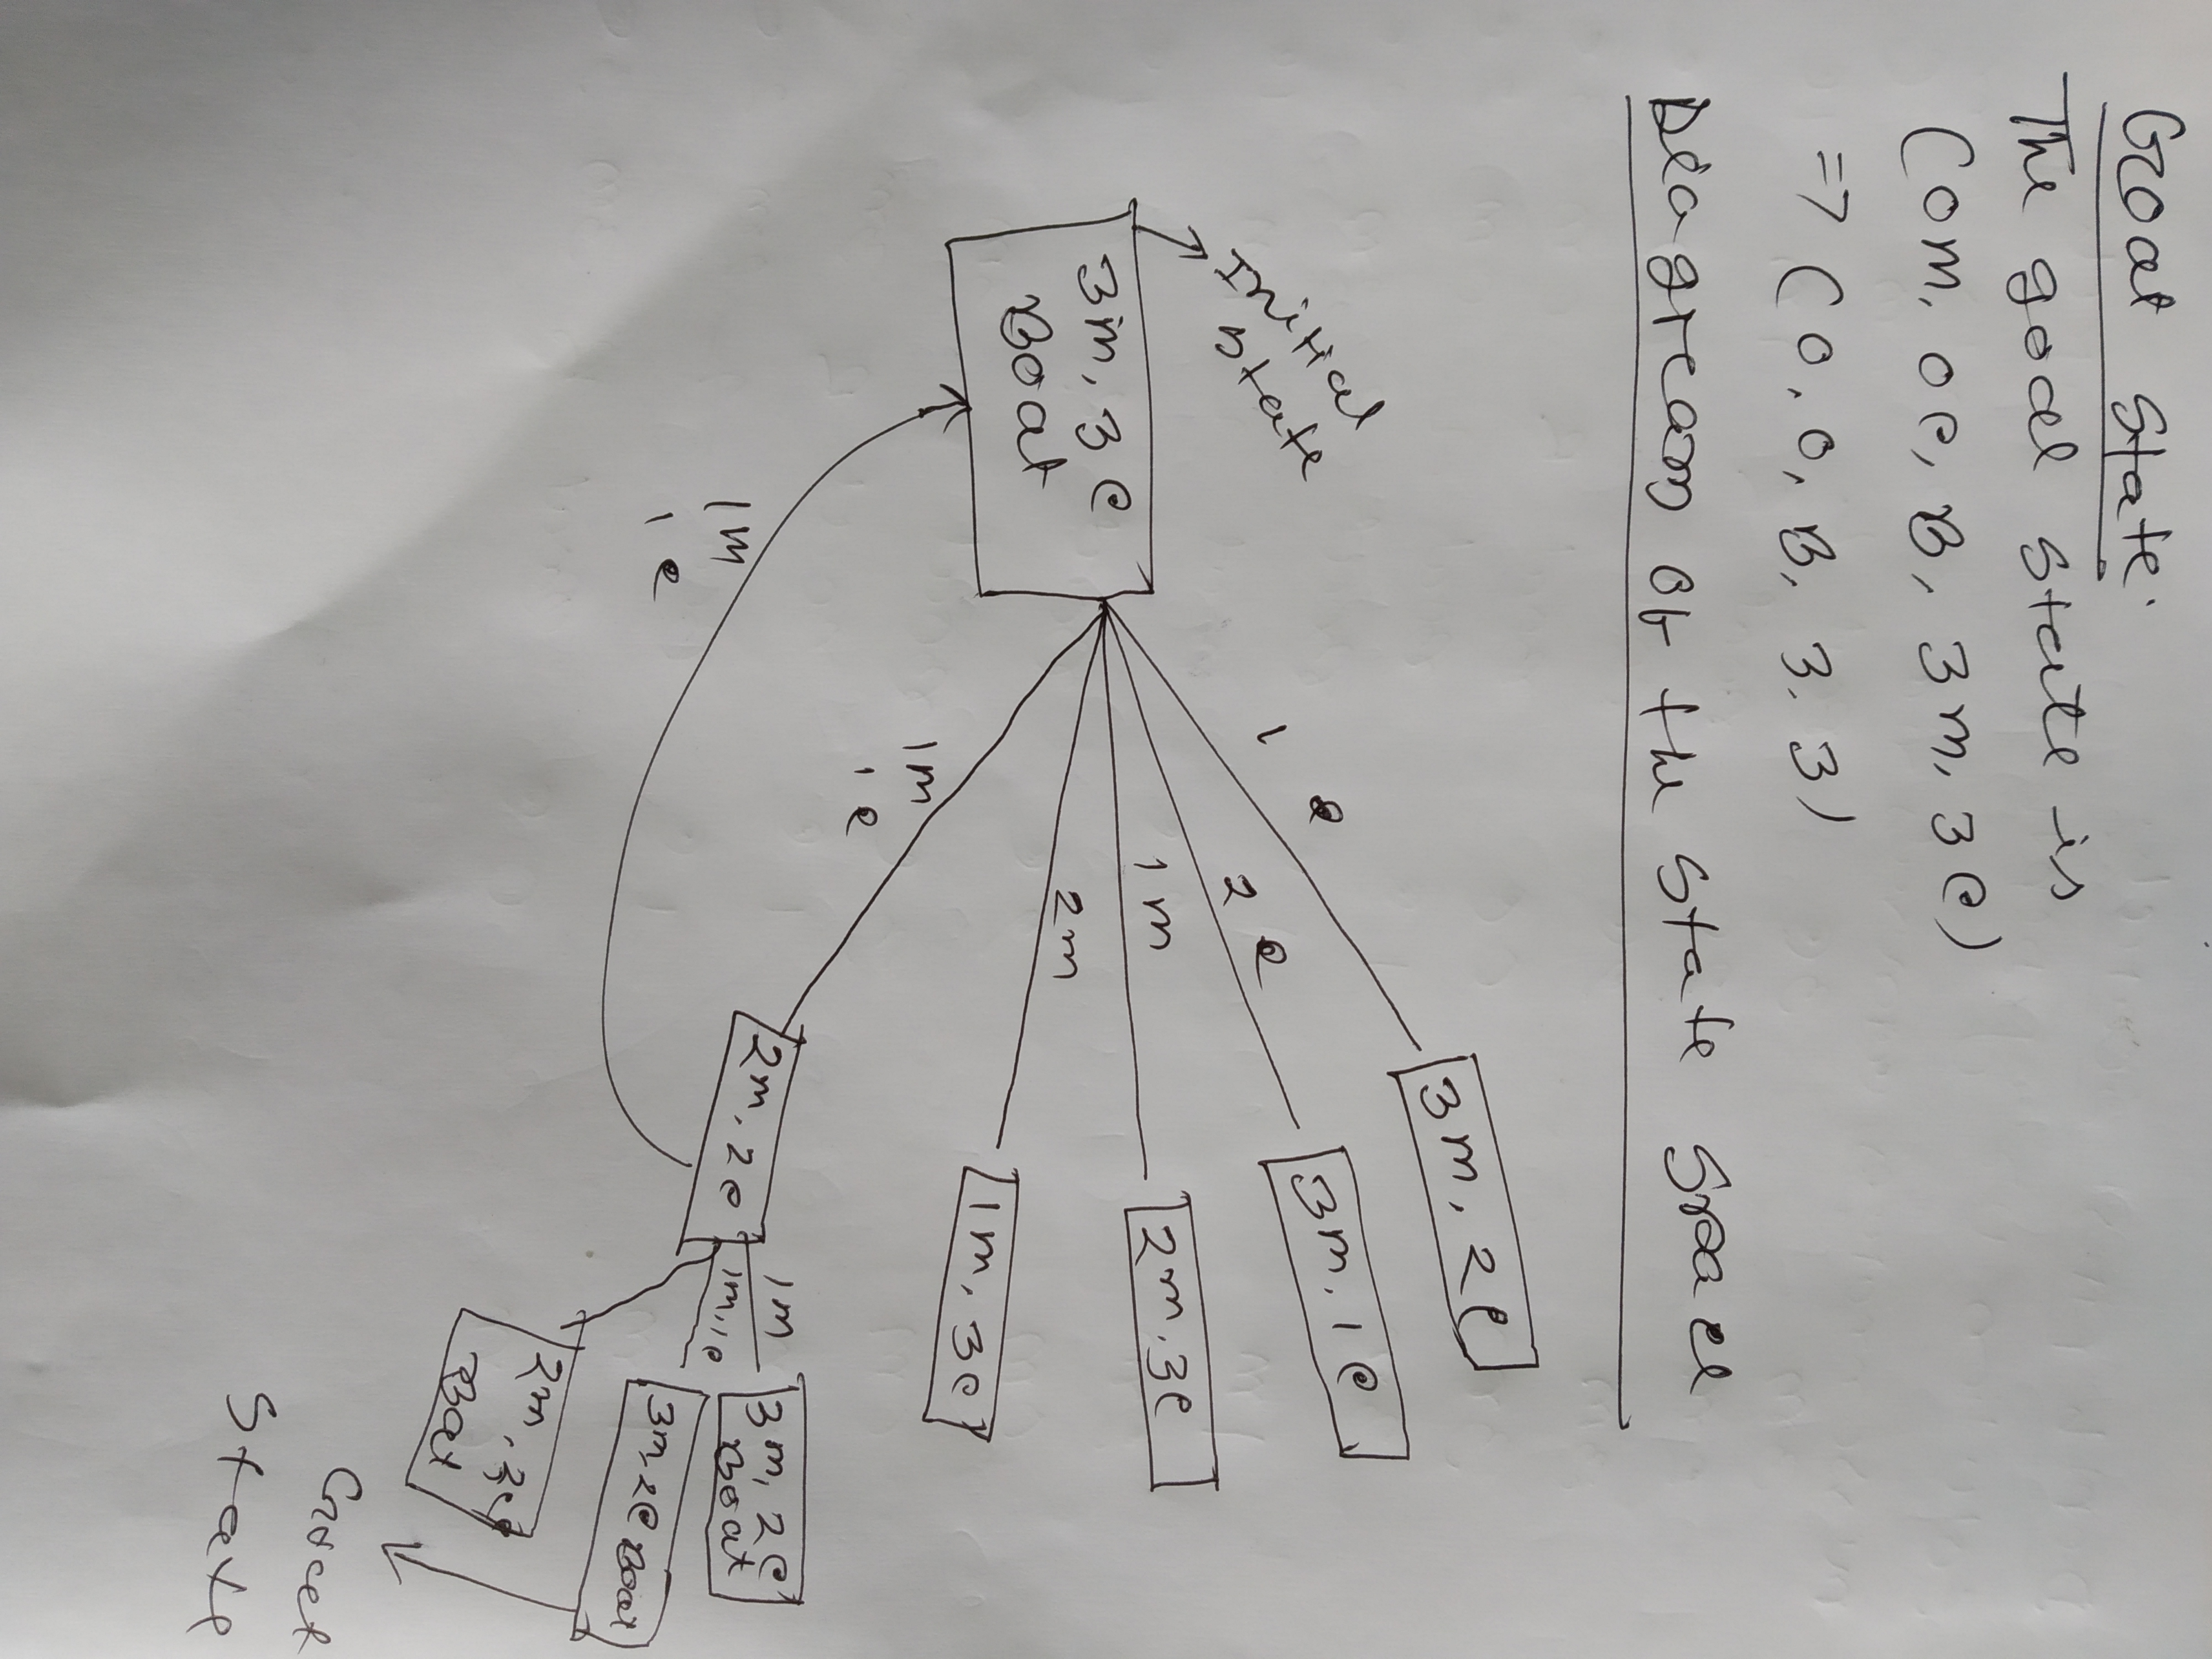 Goal State:
The goal State is
(0m, 0c, B, 3m, 3c)
=> (0, 0, B, 3, 3)
Diagream of the State Space
Initial
state
3m, 3c
Boat
1 c
2 c
1m
2m
1m
1 c
1m
1 c
3m, 2c
3m, 1c
2m, 3c
1m, 3c
2m, 2c
1m
1m, 1c
3m, 2c
Boat
3m, 2c Boat
Boat
Goal
State